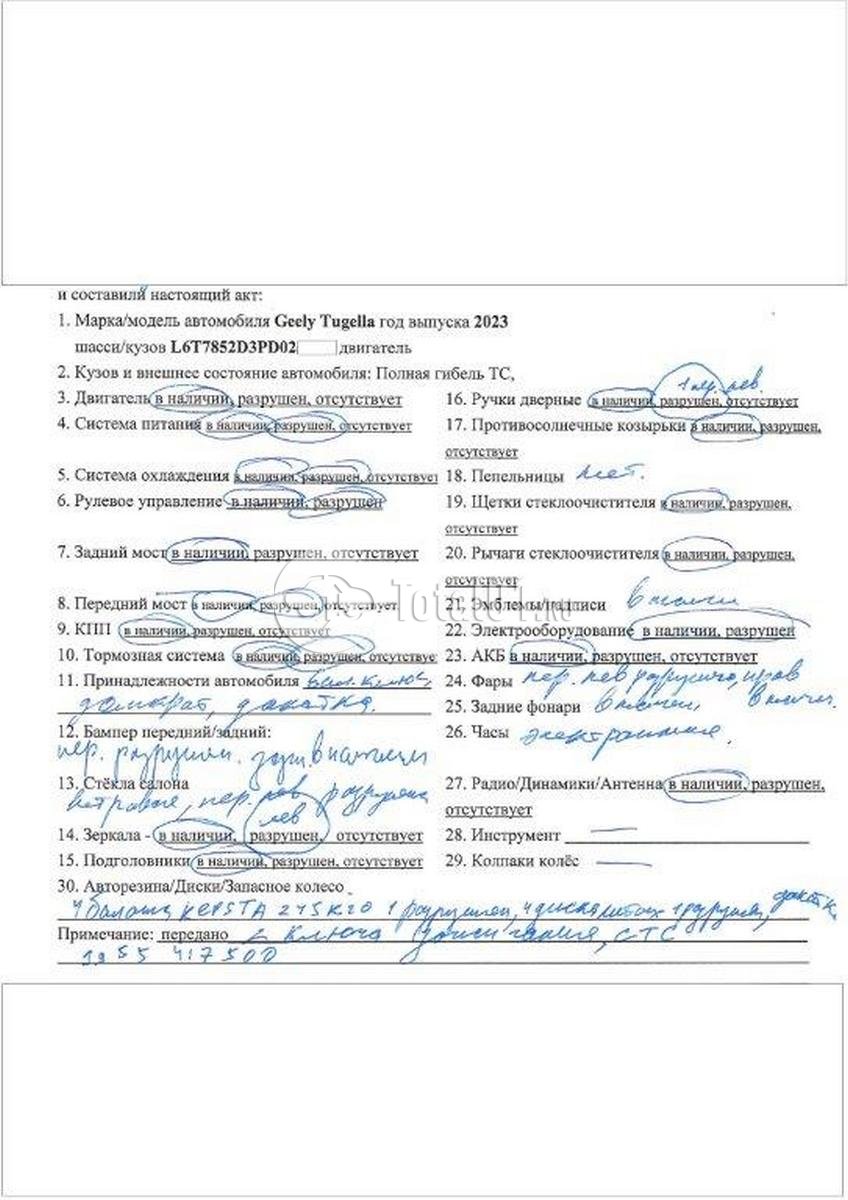 и составили настоящий акт:
1. Марка/модель автомобиля Geely Tugella год выпуска 2023
шасси/кузов L6T7852D3PD02 двигатель
2. Кузов и внешнее состояние автомобиля: Полная гибель ТС,
1 пер. лев.
3. Двигатель в наличии, разрушен, отсутствует
4. Система питания в наличии, разрушен, отсутствует
5. Система охлаждения в наличии, разрушен, отсутствует
6. Рулевое управление в наличии, разрушен
7. Задний мост в наличии, разрушен, отсутствует
8. Передний мост в наличии, разрушен, отсутствует
9. КПП в наличии, разрушен, отсутствует
10. Тормозная система в наличии, разрушен, отсутствует
11. Принадлежности автомобиля бал. ключ,
домкрат, докатка.
12. Бампер передний/задний:
пер. разрушен. задн. в наличии
13. Стёкла салона
ветровое, пер. лев разрушена
лев
14. Зеркала - в наличии, разрушен, отсутствует
15. Подголовники в наличии, разрушен, отсутствует
16. Ручки дверные в наличии, разрушен, отсутствует
17. Противосолнечные козырьки в наличии, разрушен,
отсутствует
18. Пепельницы нет.
19. Щетки стеклоочистителя в наличии, разрушен,
отсутствует
20. Рычаги стеклоочистителя в наличии, разрушен,
отсутствует
21. Эмблемы/надписи в наличии
22. Электрооборудование в наличии, разрушен
23. АКБ в наличии, разрушен, отсутствует
24. Фары пер. лев разрушена, прав
в наличи.
25. Задние фонари в наличии,
26. Часы электронные.
27. Радио/Динамики/Антенна в наличии, разрушен,
отсутствует
28. Инструмент —
29. Колпаки колёс —
30. Авторезина/Диски/Запасное колесо
4 балона 245 R20 1 разрушен, 4 диска литых 1 разрушен, докатка
Примечание: передано 2 ключа зажигания, СТС
9955 417500
TotalO1.ru